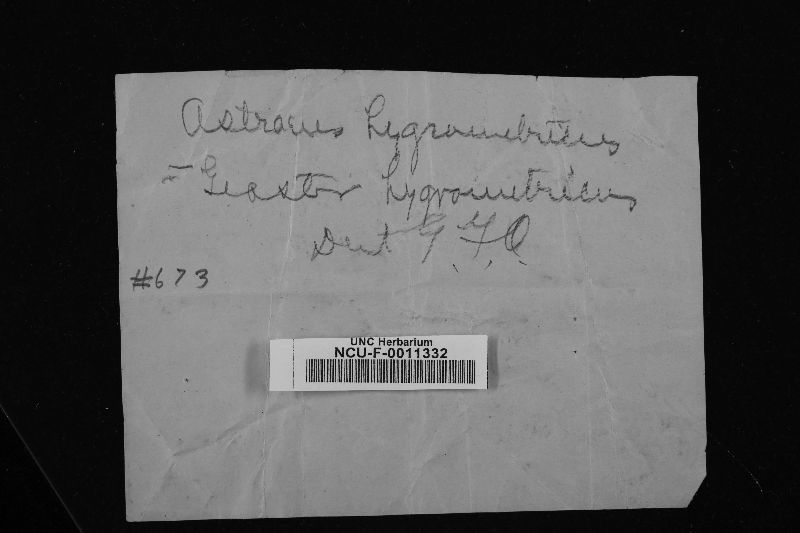 Astraeus hygrometricus
= Geaster hygrometricus
Det
#673
UNC Herbarium
NCU-F-0011332